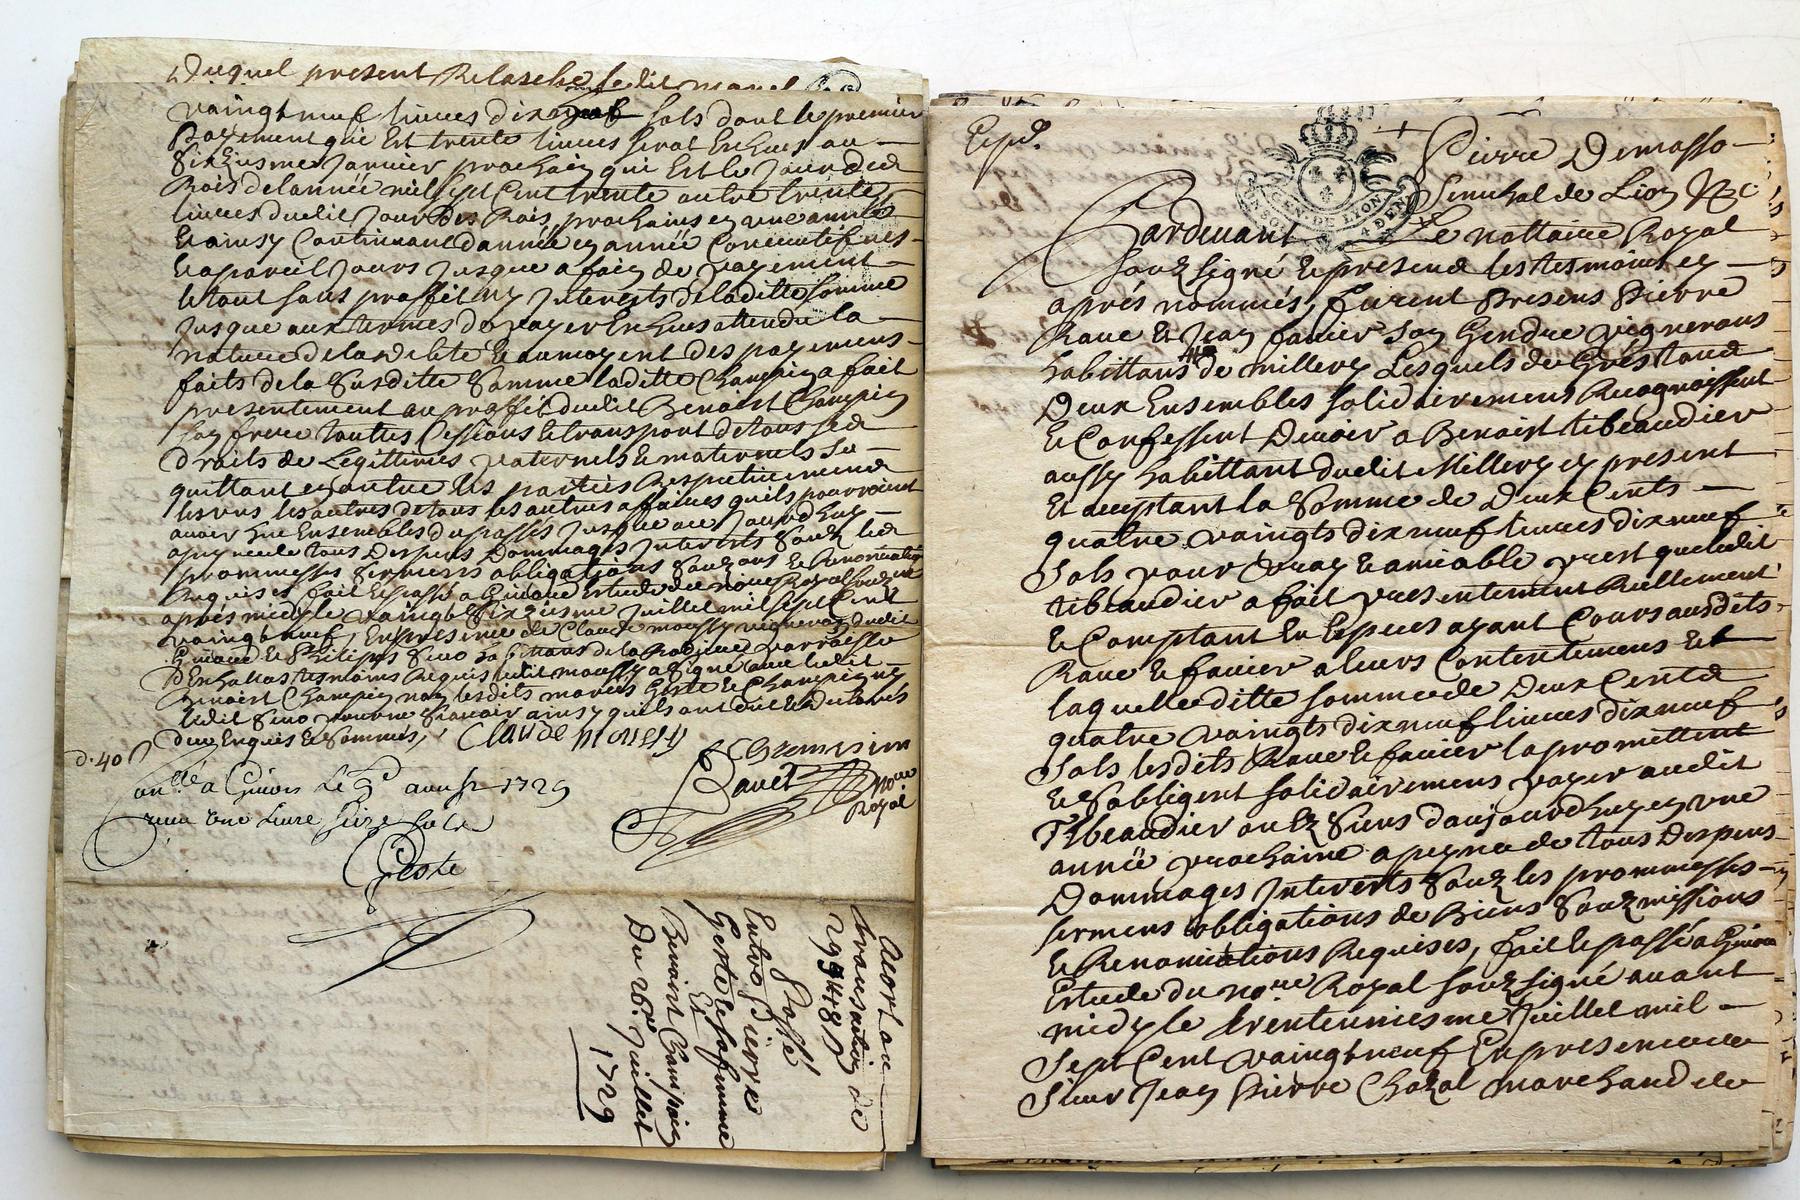 Duquel present Relasche ledit
vaingt neuf livres dix neuf sols dont le premier
payement qui Est trente livres serat Escheus au
Sixziesme Janvier prochain qui Est le Jour des
Rois de lannée mil sept Cent trente autre trente
livres dudit Jour des Rois prochains en une année
Et ainsy Continuant dannée en année Consecutifves
Et a pareil Jours Jusque a fain de payement
le tout sans proffit ny Interests de laditte somme
Jusque aux termes de payer Escheus attendu la
nature de la debte Et au moyent des payemens
faits de la Susditte Somme laditte Champin a fait
presentement au proffit dudit Benoist Champin
son frere touttes Cessions Et transport de tous ses
droits de Legittimes paternels Et maternels Se
quittant en outre les parties Respectivement
les uns les autres de tous les autres affaires quils pourroient
avoir Eue Ensembles du passés Jusque au Jourdhuy
a peyne de tous Despens Dommages Interests Souz les
prommesses sermens obligations Souzons Et Renonciation
Requises fait Et passé a Givord Estude du noue Royal souzne
aprés midy le vaingt Sixziesme Juillet mil sept Cent
vaingt neuf, En presence de Claude moussy vigneron dudit
Givord Et Philipes Sino habittans de la parroisse
DEschallas tesmoins Requis ledit moussy a signé avec ledit
Benoist Champin non lesdits mariés Geste Et Champin
ledit Sino pour ne Scavoir ainsy quils ont dit Et declarés
deux Enquis Et Sommés, Claude moussy
d. 40
B Champin
Bavet noue
Royal
onllé a Givors Le 9e aoust 1729
recu une Livre seize sols
Geste
Acort ou
transaction de
299# 18 s
Passé
Entre Pierre
Geste Et sa femme
Et
Benoist Champin
Du 26e Juillet
1729
Expé.
Pierre Demasso
Senechal de Lion &c
GEN. DE LION
Pardevant Le nottaire Royal
souz signé Et presend les tesmoins en
aprés nommés, furent Presens Pierre
Rave Et Jean favier son Gendre vignerons
habittans de millery Lesquels de Gréstand
Deux Ensembles solidairement Recognoissent
Et Confessent Devoir a Benoist tibeaudier
aussy habittant dudit Millery cy present
Et acceptant la Somme de Deux Cents
quatre vaingts dix neuf livres dix neuf
Sols pour vray Et amiable prest que ledit
tibeaudier a fait presentement Reellement
Et Comptant En Especes ayant Cours ausdits
Rave Et favier a leurs Contentemens Et
laquelle ditte somme de Deux Cents
quatre vaingts dix neuf livres dix neuf
Sols lesdits Rave Et favier la promettent
Et Sobligent solidairement payer audit
Tibeaudier ou Ez Siens daujourdhuy en une
année prochaine a peyne de tous Despens
Dommages Interests Souz les prommesses
sermens obligations de Biens Souzmissions
Et Renonciations Requises, fait Et passé a Givord
Estude du noue Royal souz signé avant
midy le trentenniesme Juillet mil
Sept Cent vaingt neuf En presence de
Sieur Jean Pierre Chazal marchand de